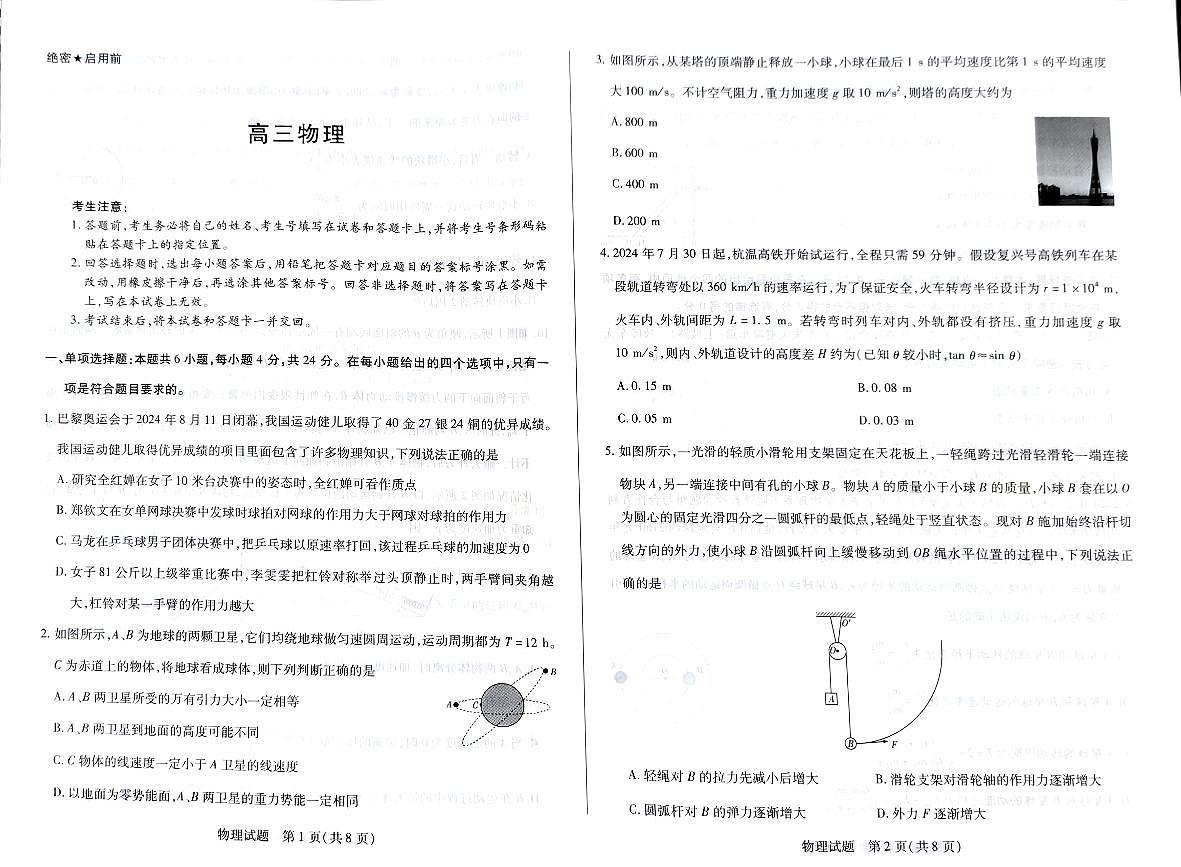 绝密★启用前
高三物理
考生注意:
1.答题前,考生务必将自己的姓名、考生号填写在试卷和答题卡上,并将考生号条形码粘
贴在答题卡上的指定位置。
2.回答选择题时,选出每小题答案后,用铅笔把答题卡对应题目的答案标号涂黑。如需
改动,用橡皮擦干净后,再选涂其他答案标号。回答非选择题时,将答案写在答题卡
上,写在本试卷上无效。
3.考试结束后,将本试卷和答题卡一并交回。
一、单项选择题:本题共6小题,每小题4分,共24分。在每小题给出的四个选项中,只有一
项是符合题目要求的。
1.巴黎奥运会于2024年8月11日闭幕,我国运动健儿取得了40金27银24铜的优异成绩。
我国运动健儿取得优异成绩的项目里面包含了许多物理知识,下列说法正确的是
A.研究全红婵在女子10米台决赛中的姿态时,全红婵可看作质点
B.郑钦文在女单网球决赛中发球时球拍对网球的作用力大于网球对球拍的作用力
C.马龙在乒乓球男子团体决赛中,把乒乓球以原速率打回,该过程乒乓球的加速度为0
D.女子81公斤以上级举重比赛中,李雯雯把杠铃对称举过头顶静止时,两手臂间夹角越
大,杠铃对某一手臂的作用力越大
2.如图所示,A、B为地球的两颗卫星,它们均绕地球做匀速圆周运动,运动周期都为T=12 h。
C为赤道上的物体,将地球看成球体,则下列判断正确的是
A.A、B两卫星所受的万有引力大小一定相等
B.A、B两卫星到地面的高度可能不同
C.C物体的线速度一定小于A卫星的线速度
D.以地面为零势能面,A、B两卫星的重力势能一定相同
A
C
B
物理试题 第1页(共8页)
3.如图所示,从某塔的顶端静止释放一小球,小球在最后1 s的平均速度比第1 s的平均速度
大100 m/s。不计空气阻力,重力加速度g取10 m/s²,则塔的高度大约为
A.800 m
B.600 m
C.400 m
D.200 m
4.2024年7月30日起,杭温高铁开始试运行,全程只需59分钟。假设复兴号高铁列车在某
段轨道转弯处以360 km/h的速率运行,为了保证安全,火车转弯半径设计为r=1×10⁴ m,
火车内、外轨间距为L=1.5 m。若转弯时列车对内、外轨都没有挤压,重力加速度g取
10 m/s²,则内、外轨道设计的高度差H约为(已知θ较小时,tan θ≈sin θ)
A.0.15 m B.0.08 m
C.0.05 m D.0.03 m
5.如图所示,一光滑的轻质小滑轮用支架固定在天花板上,一轻绳跨过光滑轻滑轮一端连接
物块A,另一端连接中间有孔的小球B。物块A的质量小于小球B的质量,小球B套在以O
为圆心的固定光滑四分之一圆弧杆的最低点,轻绳处于竖直状态。现对B施加始终沿杆切
线方向的外力,使小球B沿圆弧杆向上缓慢移动到OB绳水平位置的过程中,下列说法正
确的是
O′
O
A
B
F
A.轻绳对B的拉力先减小后增大 B.滑轮支架对滑轮轴的作用力逐渐增大
C.圆弧杆对B的弹力逐渐增大 D.外力F逐渐增大
物理试题 第2页(共8页)